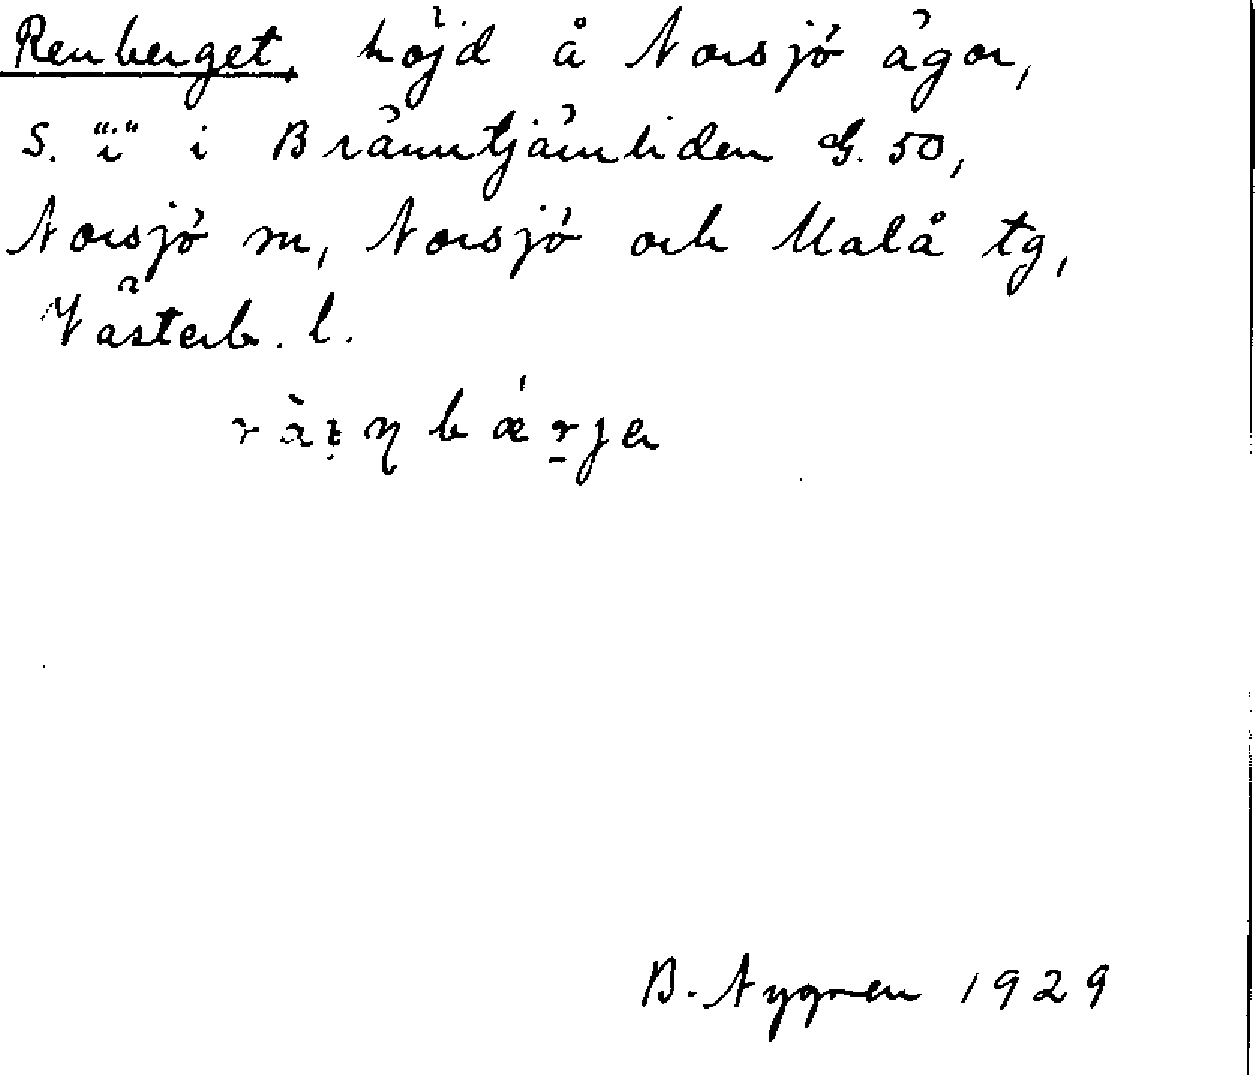 Renberget, höjd å Norsjö ägor,
S. "i" i Bränntjärnliden G. 50,
Norsjö sn, Norsjö och Malå tg,
Västerb. l.
B. Nygren 1929